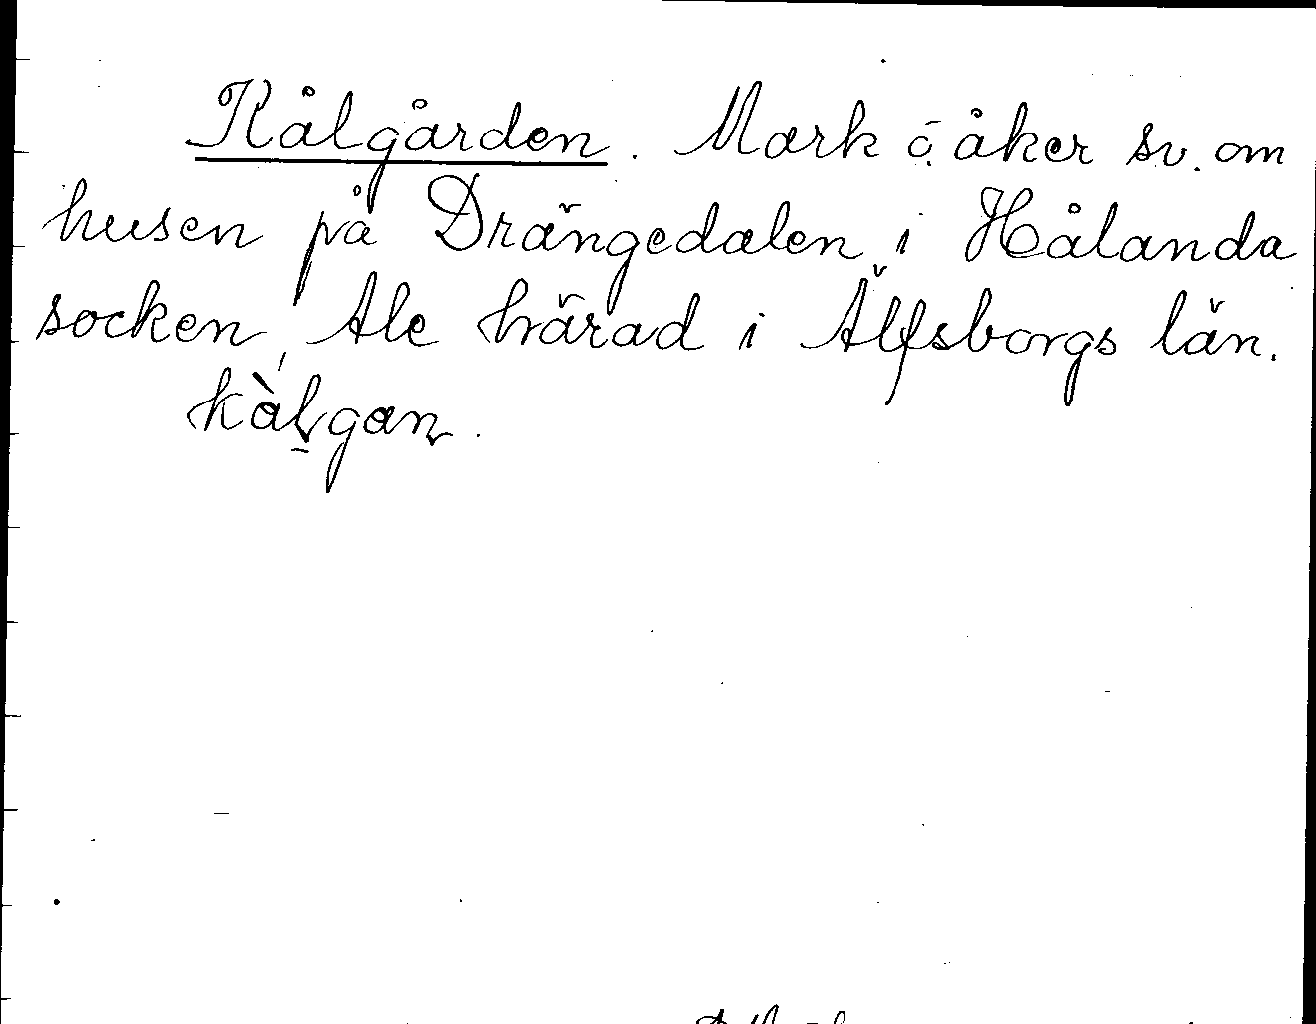 Kålgården. Mark o. åker sv. om
husen på Drängedalen i Hålanda
socken, Ale härad i Älfsborgs län.
kàlgan.